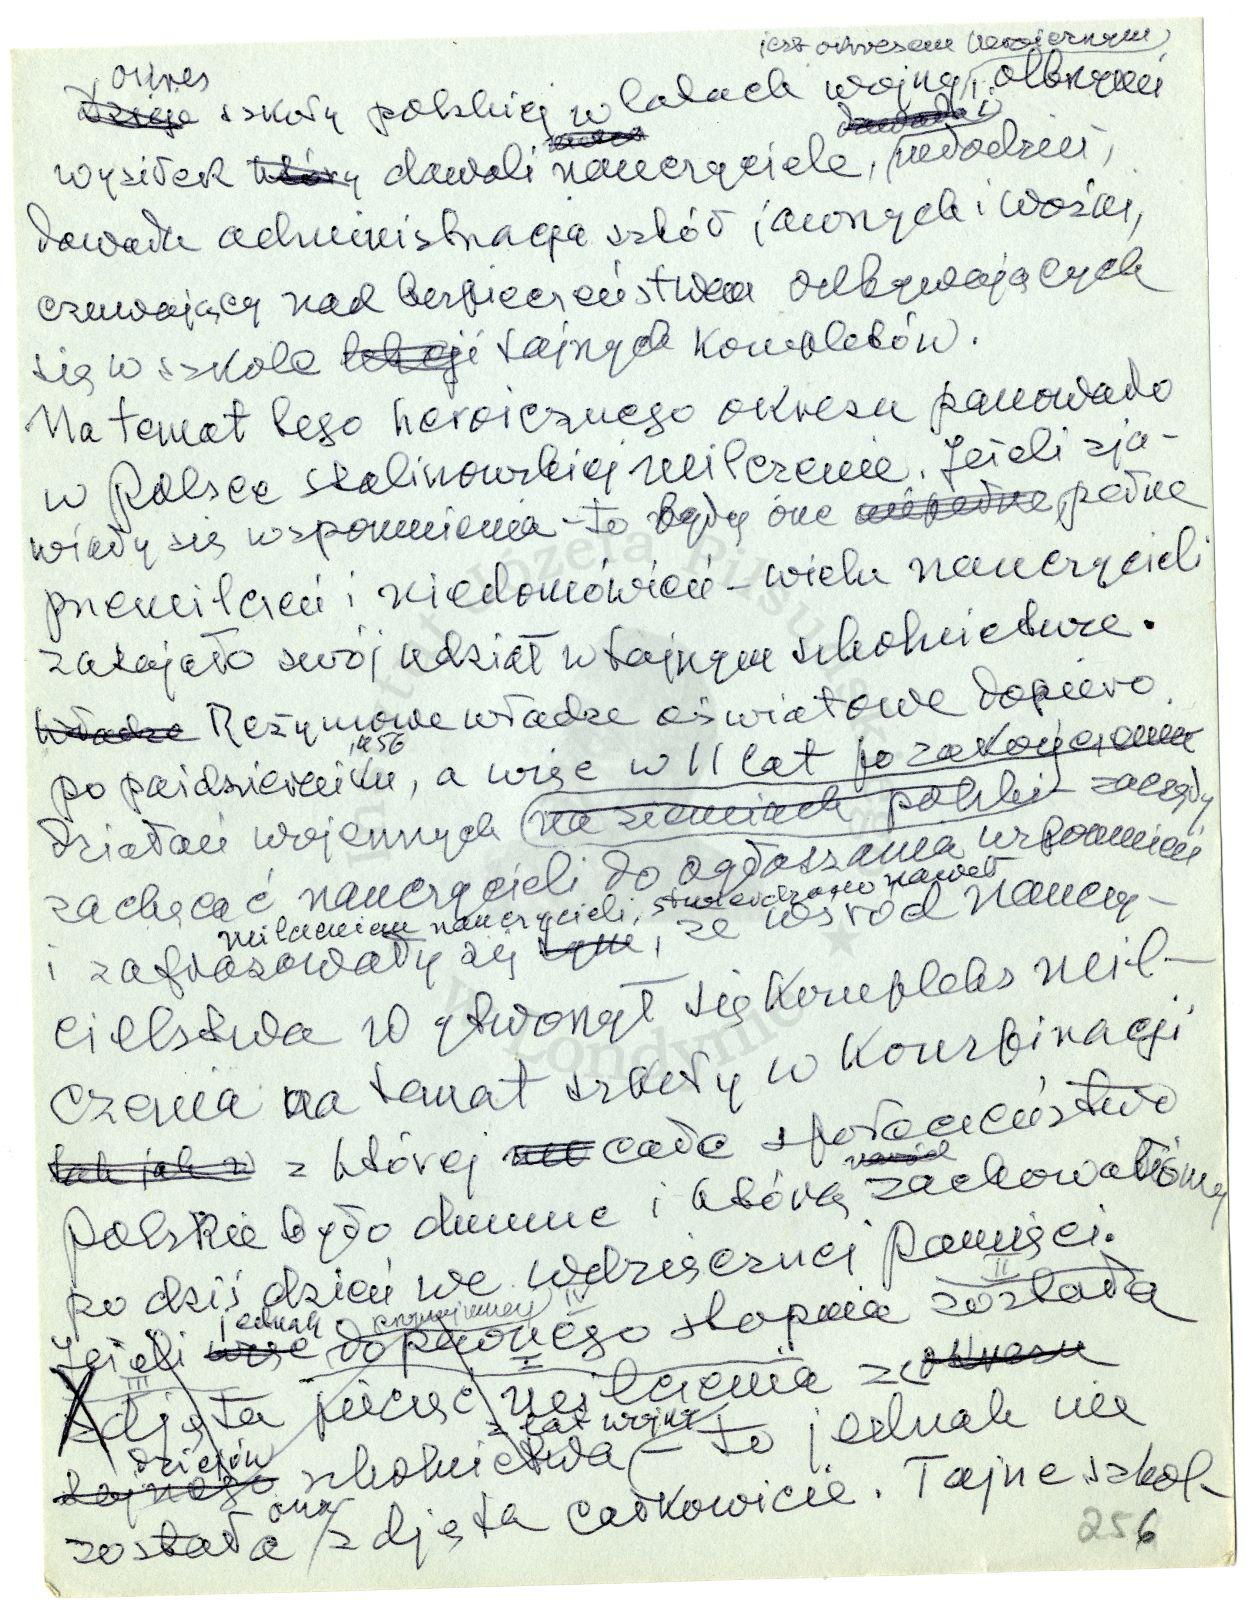 jest okresem heroicznym,
Okres
Dzieje szkoły polskiej w latach wojny, olbrzymi
wysiłek który dawali nauczyciele, młodzież,
dawała administracja szkół jawnych i woźni,
czuwający nad bezpieczeństwem odbywających
się w szkole lekcji tajnych kompletów.
Na temat tego heroicznego okresu panowało
w Polsce stalinowskiej milczenie. Jeżeli zja-
wiały się wspomnienia - to były one niepełne, pełne
przemilczeń i niedomówień - wielu nauczycieli
zatajało swój udział w tajnym szkolnictwie.
Władze Reżymowe władze oświatowe dopiero
1956
po październiku, a więc w 11 lat po zakończeniu
działań wojennych na ziemiach polski - zaczęły
zachęcać nauczycieli do ogłaszania wspomnień
milczeniem nauczycieli, stwierdzono nawet
i zafrasowały się tym, że wśród nauczy-
cielstwa wytworzył się kompleks mil-
czenia na temat szkoły w konspiracji
tak jak w z której całe społeczeństwo
naród
Polskie było dumne i którą zachowaliśmy
po dziś dzień we wdzięcznej pamięci.
jednak II
Jeżeli więc do pewnego stopnia została
III I
zdjęta pieczęć milczenia z okresu
dziejów z lat wojny
tajnego szkolnictwa - to jednak nie
ona
została zdjęta całkowicie. Tajne szkol-
256
Instytut Józefa Piłsudskiego
w Londynie